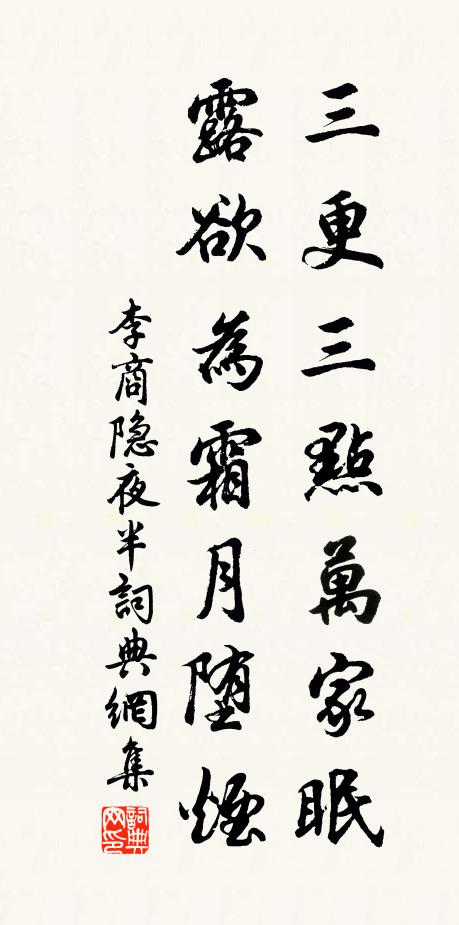 三更三點萬家眠
露欲為霜月堕煙
李商隐夜半詞典網集
詞典網印